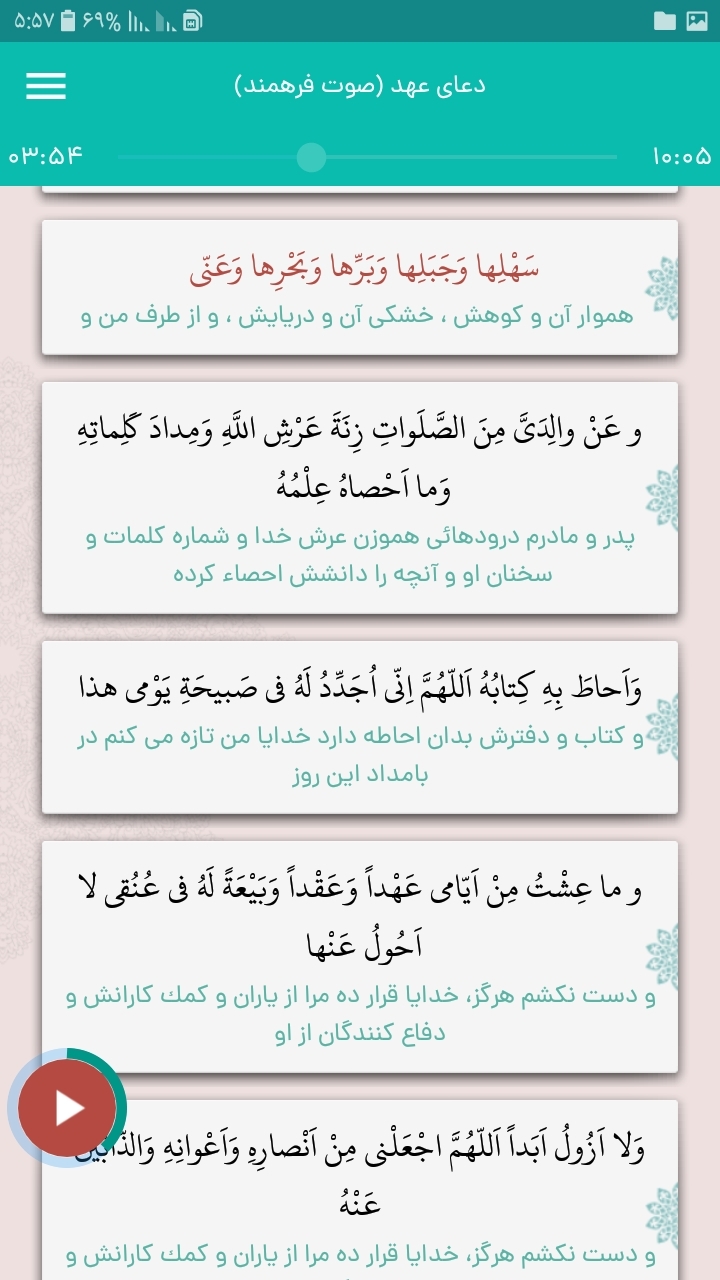 ۵:۵۷ ۶۹%
دعای عهد (صوت فرهمند)
۰۳:۵۴ ۱۰:۰۵
سَهْلِها وَجَبَلِها وَبَرِّها وَبَحْرِها وَعَنّی
هموار آن و کوهش ، خشکی آن و دریایش ، و از طرف من و
و عَنْ والِدَیَّ مِنَ الصَّلَواتِ زِنَةَ عَرْشِ اللَّهِ وَمِدادَ کَلِماتِهِ
وَما اَحْصاهُ عِلْمُهُ
پدر و مادرم درودهائی هموزن عرش خدا و شماره کلمات و
سخنان او و آنچه را دانشش احصاء کرده
وَاَحاطَ بِهِ کِتابُهُ اَللّهُمَّ اِنّی اُجَدِّدُ لَهُ فی صَبیحَةِ یَوْمی هذا
و کتاب و دفترش بدان احاطه دارد خدایا من تازه می کنم در
بامداد این روز
و ما عِشْتُ مِنْ اَیّامی عَهْداً وَعَقْداً وَبَیْعَةً لَهُ فی عُنُقی لا
اَحُولُ عَنْها
و دست نکشم هرگز، خدایا قرار ده مرا از یاران و کمک کارانش و
دفاع کنندگان از او
وَلا اَزُولُ اَبَداً اَللّهُمَّ اجْعَلْنی مِنْ اَنْصارِهِ وَاَعْوانِهِ وَالذّابّینَ
عَنْهُ
و دست نکشم هرگز، خدایا قرار ده مرا از یاران و کمک کارانش و